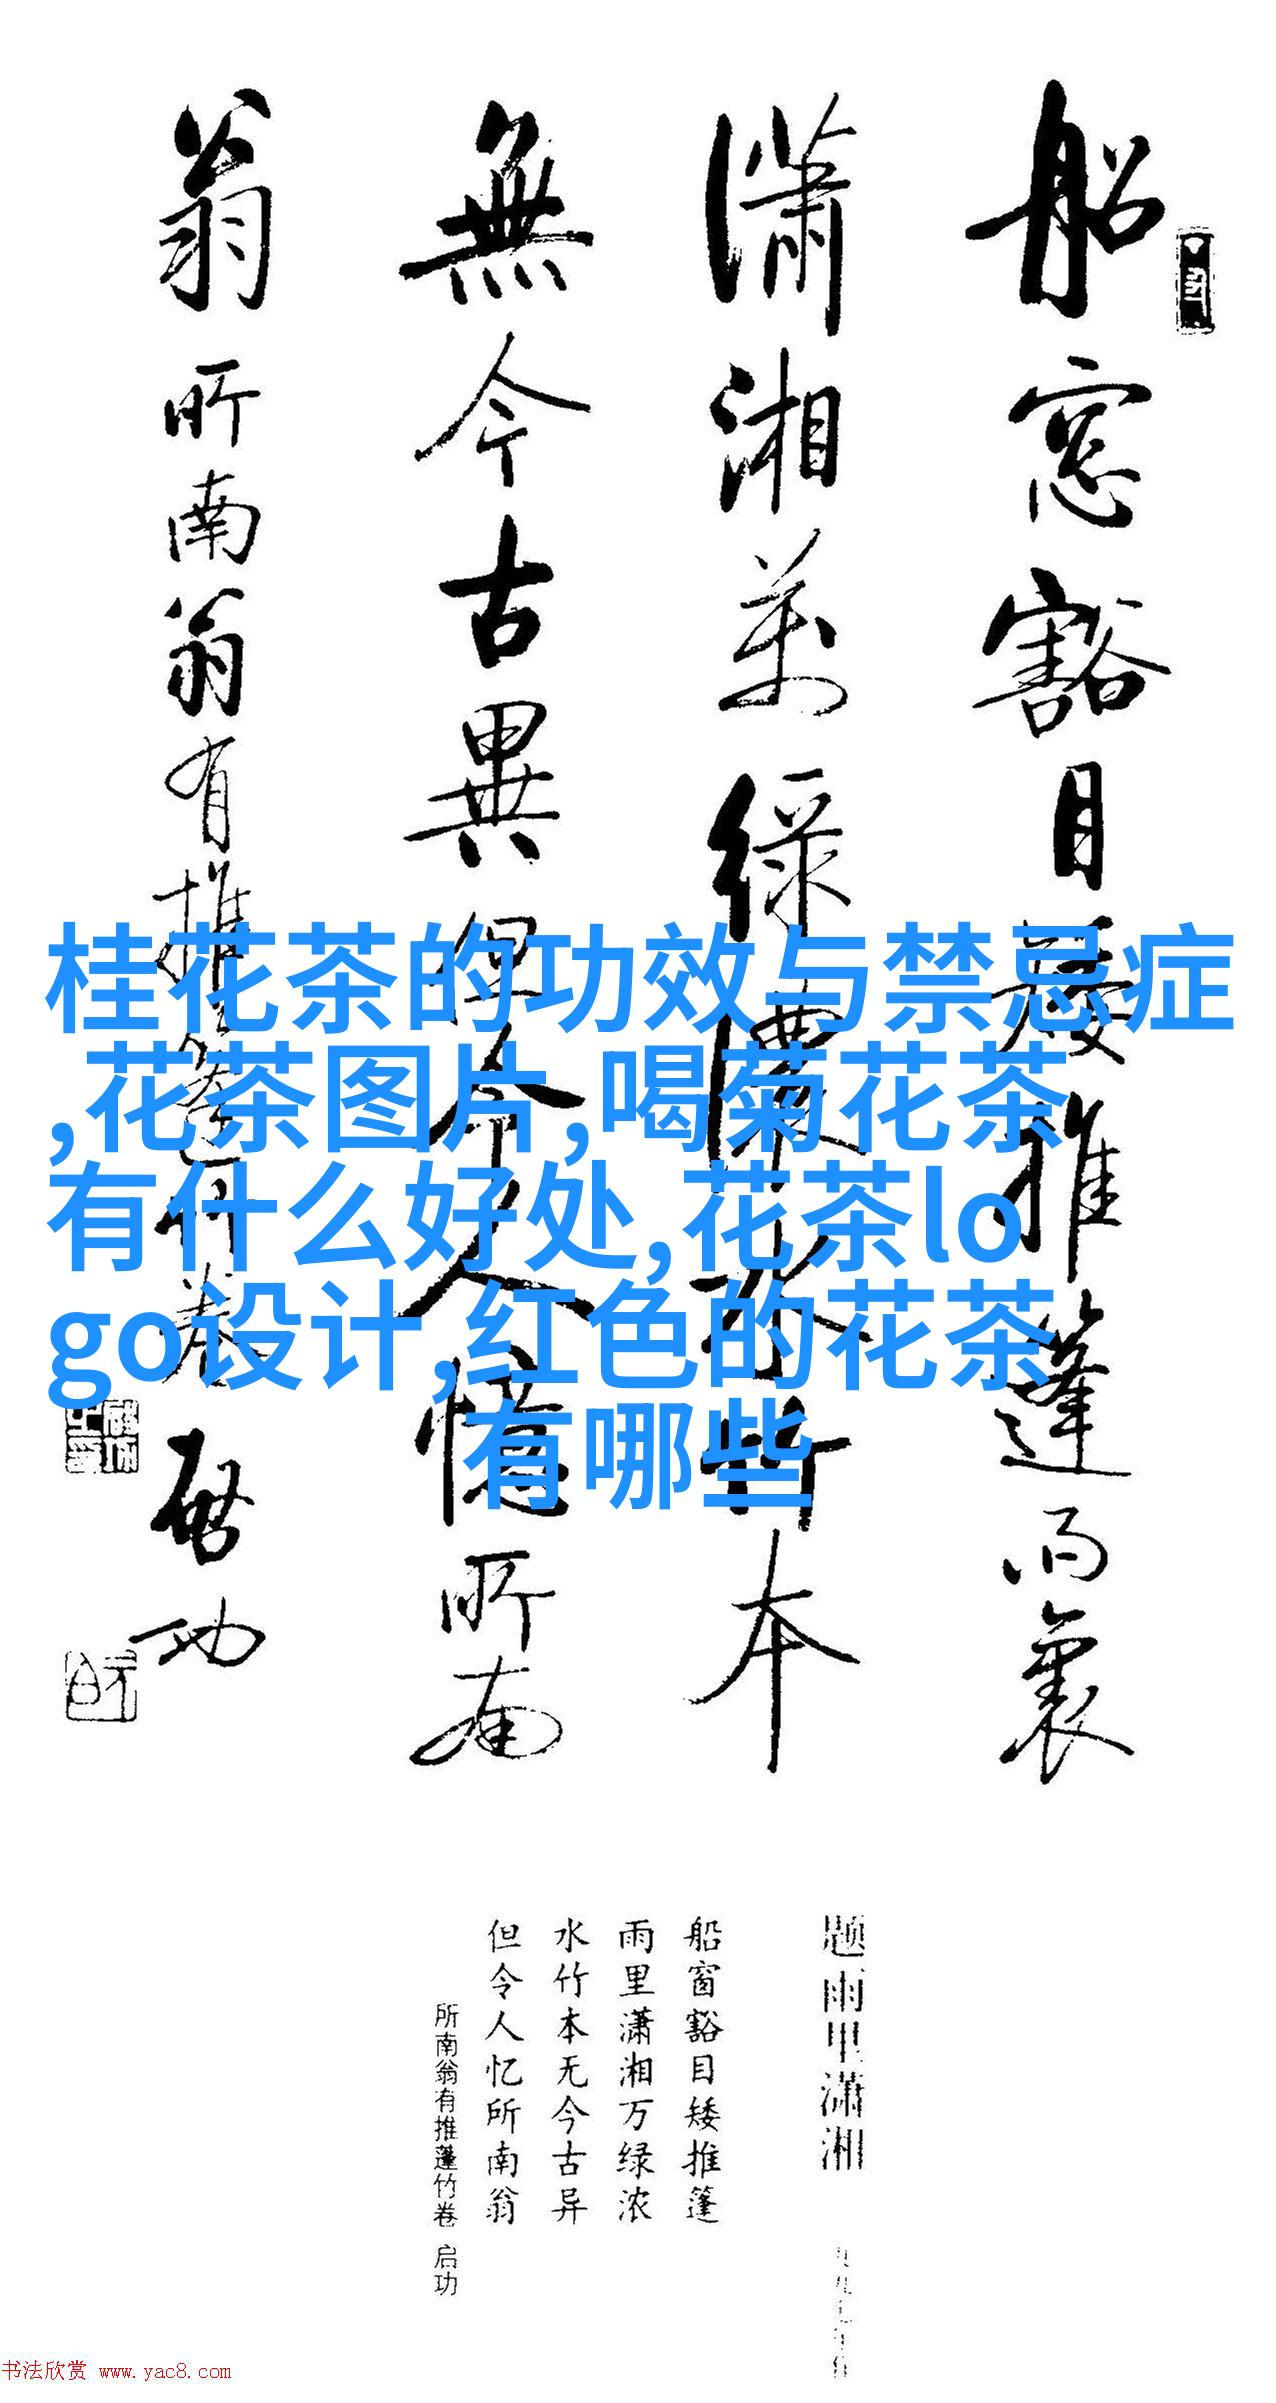 船窓豁目矮推篷雨裏
瀟湘萬緑濃水竹本
無今古異但令人憶所南
翁 所南翁有推篷竹卷 启功
桂花茶的功效与禁忌症
,花茶图片,喝菊花茶
有什么好处,花茶lo
go设计,红色的花茶
有哪些
题雨里潇湘
船窗豁目矮推篷
雨里潇湘万绿浓
水竹本无今古异
但令人忆所南翁
所南翁有推蓬竹卷 启功
书法欣赏 www.yac8.com